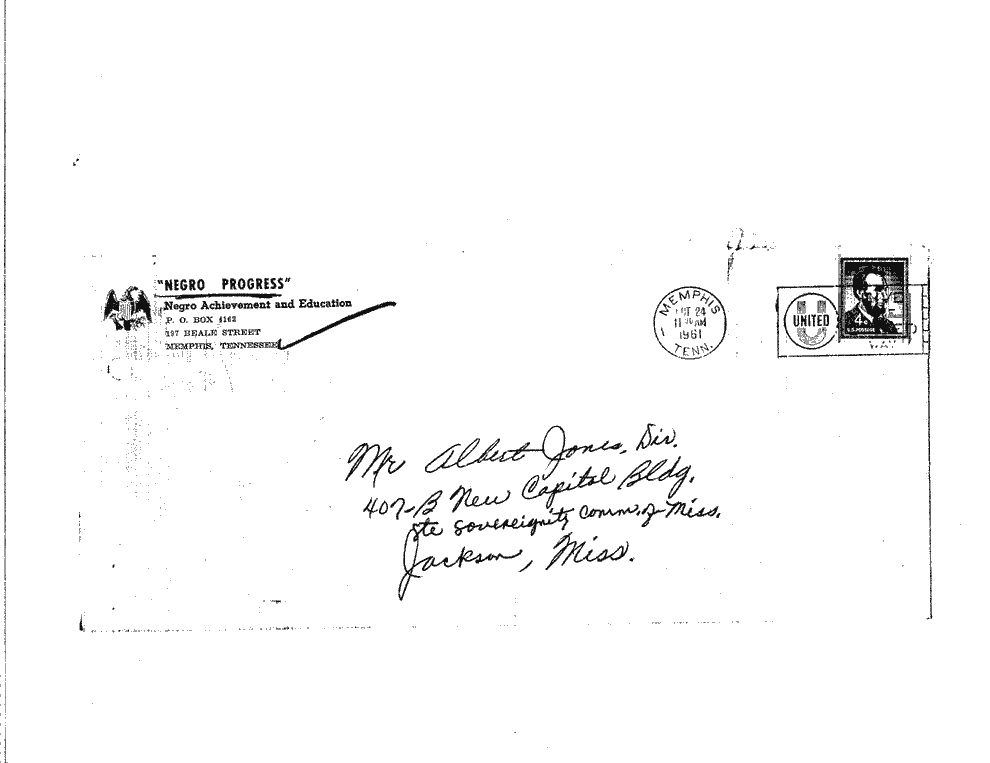 "NEGRO PROGRESS"
Negro Achievement and Education
P. O. BOX 4162
197 BEALE STREET
MEMPHIS, TENNESSEE
MEMPHIS
24
11 AM
1961
TENN.
UNITED
4
Mr Albert Jones, Dir.
407-B New Capitol Bldg.
Ste Sovereignity Comm. of Miss.
Jackson, Miss.